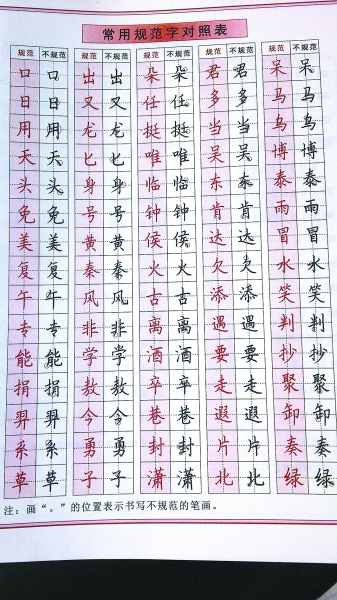 常用规范字对照表
规范 不规范 规范 不规范 规范 不规范 规范 不规范 规范 不规范
口 口 出 出 朵 朵 君 君 呆 呆
日 日 又 又 任 任 多 多 马 马
用 用 龙 龙 挺 挺 当 当 乌 乌
天 天 匕 匕 唯 唯 吴 吴 博 博
头 头 身 身 临 临 东 东 泰 泰
免 免 号 号 钟 钟 肯 肯 雨 雨
美 美 黄 黄 侯 侯 达 达 冒 冒
复 复 秦 秦 火 火 欠 欠 水 水
午 午 风 风 古 古 添 添 笑 笑
专 专 非 非 离 离 遇 遇 判 判
能 能 学 学 酒 酒 要 要 抄 抄
捐 捐 敖 敖 卒 卒 走 走 聚 聚
羿 羿 今 今 巷 巷 遐 遐 卸 卸
系 系 勇 勇 封 封 片 片 奏 奏
草 草 子 子 潇 潇 北 北 绿 绿
注：画“。”的位置表示书写不规范的笔画。